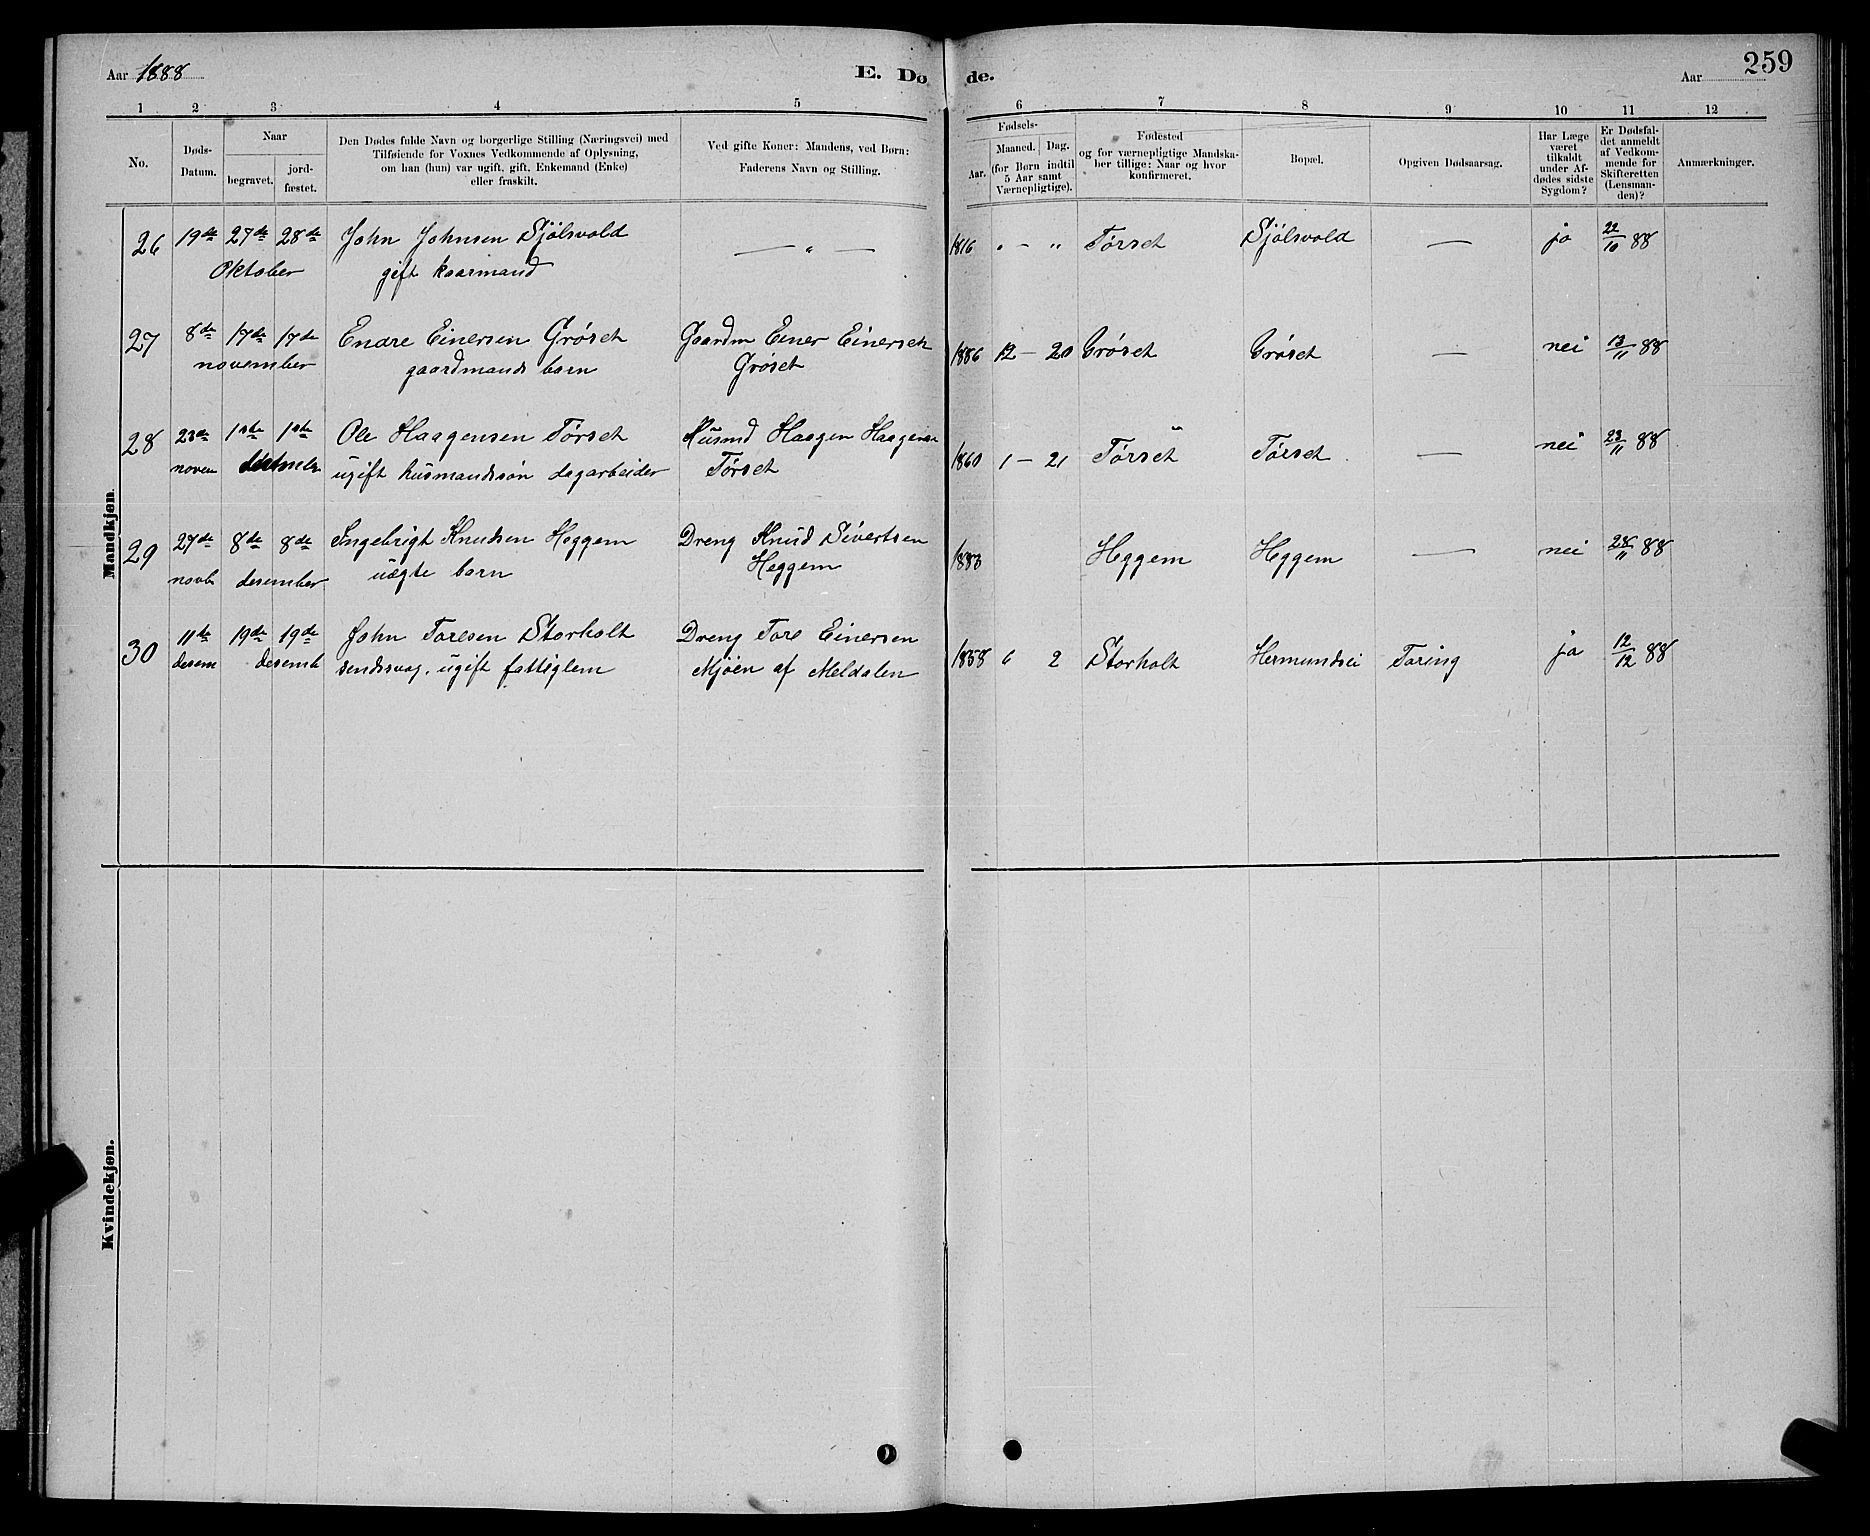 Aar 1888 E. Døde. Aar 259
1 2 3 4 5 6 7 8 9 10 11 12
No. Døds-Datum. Naar begravet. jord-fæstet. Den Dødes fulde Navn og borgerlige Stilling (Næringsvei) med Tilføiende for Voxnes Vedkommende af Oplysning, om han (hun) var ugift, gift, Enkemand (Enke) eller fraskilt. Ved gifte Koner: Mandens, ved Børn: Faderens Navn og Stilling. Fødsels- Aar. Maaned. Dag. (for Børn indtil 5 Aar samt Værnepligtige). Fødested og for værnepligtige Mandska-ber tillige: Naar og hvor konfirmeret. Bopæl. Opgiven Dødsaarsag. Har Læge været tilkaldt under Af-dødes sidste Sygdom? Er Dødsfal-det anmeldt af Vedkom-mende for Skifteretten (Lensman-den)? Anmærkninger.
Mandkjøn.
26 19de 27de 28de John Johnsen Sjölsvold — „ — 1816 „ – „ Tørset Sjölsvold — ja 22/10 88
Oktober gift kaarmand
27 8de 17de 17de Endre Einersen Grøset Gaardm Einer Einersen 1886 12 – 20 Grøset Grøset — nei 13/11 88
november gaardmands barn Grøset
28 23de 1ste 1ste Ole Haagensen Tørset Husmd Haagen Haagensen 1860 1 – 21 Tørset Tørset — nei 23/11 88
novem ugift husmandssøn dagarbeider Tørset
29 27de 8de 8de Ingebrigt Knudsen Heggem Dreng Knud Sivertsen 1883 Heggem Heggem — nei 28/11 88
novb desember uægte barn Heggem
30 11te 19de 19de John Toresen Storholt Dreng Tore Einersen 1858 6 2 Storholt Hermundsei Tæring ja 12/12 88
desem desemb sendssvag, ugift fattiglem Mjöen af Meldalen
Kvindekjøn.